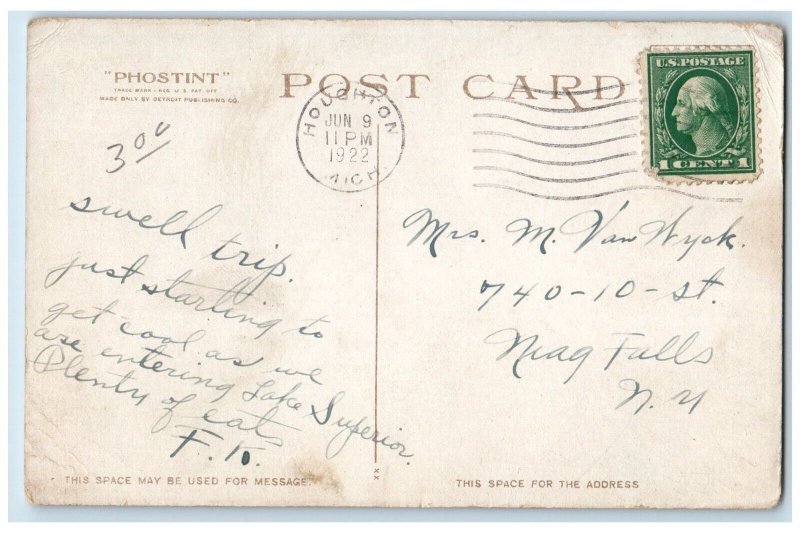 "PHOSTINT"
TRADE MARK - REG. U.S. PAT. OFF.
MADE ONLY BY DETROIT PUBLISHING CO.
POST CARD
HOUGHTON
JUN 9
11 PM
1922
MICH
U.S. POSTAGE
1 CENT 1
300/
swell trip.
just starting to
get cool as we
are entering Lake Superior.
Plenty of eats
F.K.
Mrs. M. Van Wyck.
740-10-st.
Niag Falls
N.Y
THIS SPACE MAY BE USED FOR MESSAGE.
XX
THIS SPACE FOR THE ADDRESS